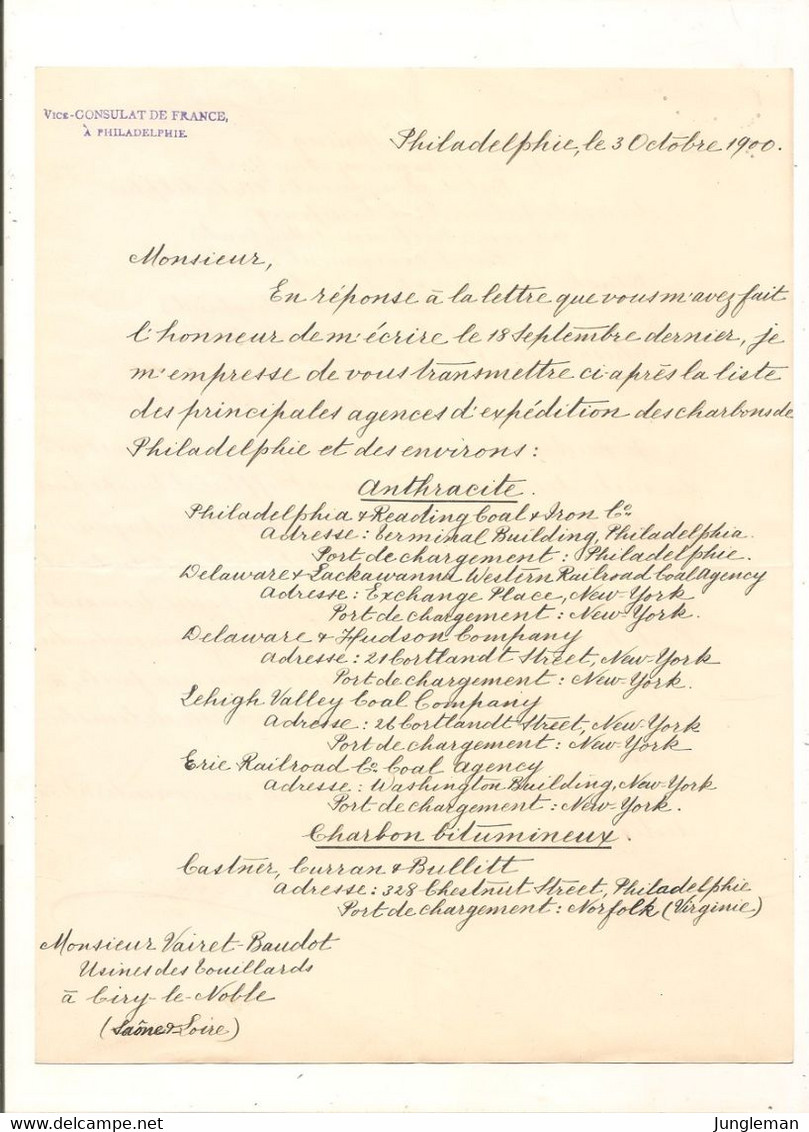 VICE-CONSULAT DE FRANCE,
À PHILADELPHIE
Philadelphie, le 3 Octobre 1900.
Monsieur,
En réponse à la lettre que vous m'avez fait
l'honneur de m'écrire le 18 Septembre dernier, je
m'empresse de vous transmettre ci-après la liste
des principales agences d'expédition des charbons de
Philadelphie et des environs :
Anthracite.
Philadelphia & Reading Coal & Iron Co.
Adresse : Terminal Building, Philadelphia.
Port de chargement : Philadelphie.
Delaware & Lackawanna Western Railroad Coal Agency
Adresse : Exchange Place, New-York
Port de chargement : New-York.
Delaware & Hudson Company
Adresse : 21 Cortlandt Street, New-York
Port de chargement : New-York.
Lehigh Valley Coal Company
Adresse : 26 Cortlandt Street, New-York
Port de chargement : New-York
Erie Railroad Co. Coal Agency
Adresse : Washington Building, New-York
Port de chargement : New-York.
Charbon bitumineux.
Castner, Curran & Bullitt
Adresse : 328 Chestnut Street, Philadelphie
Port de chargement : Norfolk (Virginie)
Monsieur Vairet-Baudot
Usines des Touillards
à Ciry-le-Noble
(Saône & Loire)
delcampe.net
Jungleman